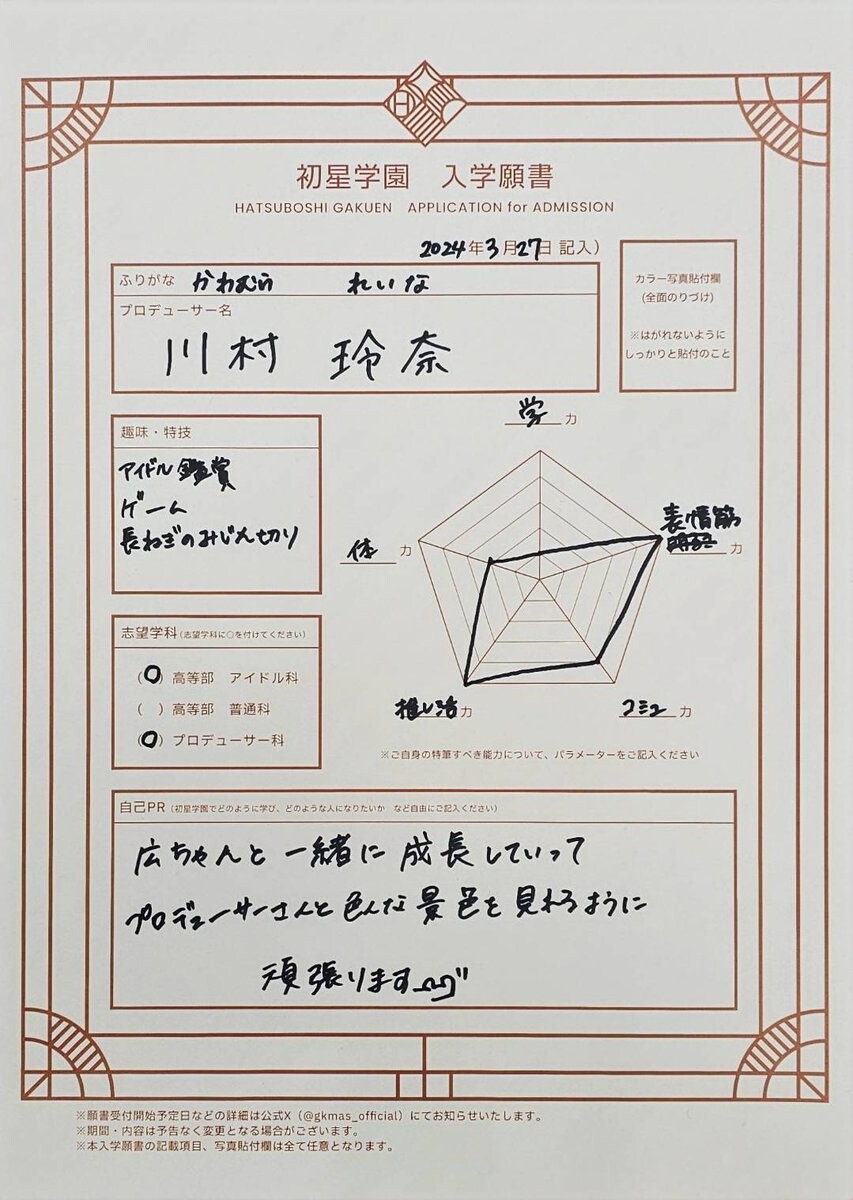 初星学園 入学願書
HATSUBOSHI GAKUEN APPLICATION for ADMISSION
2024年3月27日 記入)
ふりがな かわむら れいな
プロデューサー名
川村 玲奈
カラー写真貼付欄
(全面のりづけ)
※はがれないように
しっかりと貼付のこと
趣味・特技
アイドル鑑賞
ゲーム
長ねぎのみじん切り
学力
表情筋力
コミュ力
推し活力
体力
※ご自身の特筆すべき能力について、パラメーターをご記入ください
志望学科(志望学科に○を付けてください)
(○)高等部 アイドル科
( )高等部 普通科
(○)プロデューサー科
自己PR(初星学園でどのように学び、どのような人になりたいか など自由にご記入ください)
広ちゃんと一緒に成長していって
プロデューサーさんと色んな景色を見れるように
頑張ります
※願書受付開始予定日などの詳細は公式X(@gkmas_official)にてお知らせいたします。
※期間・内容は予告なく変更となる場合がございます。
※本入学願書の記載項目、写真貼付欄は全て任意となります。